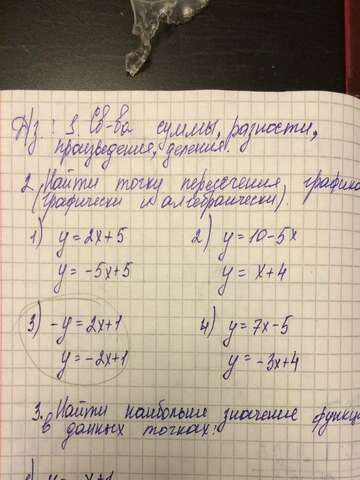 Д/з: 1. Св-ва суммы, разности,
произведения, деления.
2. Найти точку пересечения графика
(графически и алгебраически).
1) y = 2x+5 2) y = 10-5x
y = -5x+5 y = x+4
3) -y = 2x+1 4) y = 7x-5
y = -2x+1 y = -3x+4
3. Найти наибольше значение функц
в данных точках: